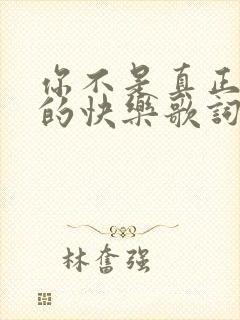 你不是真正
的快樂歌詞
林奮强